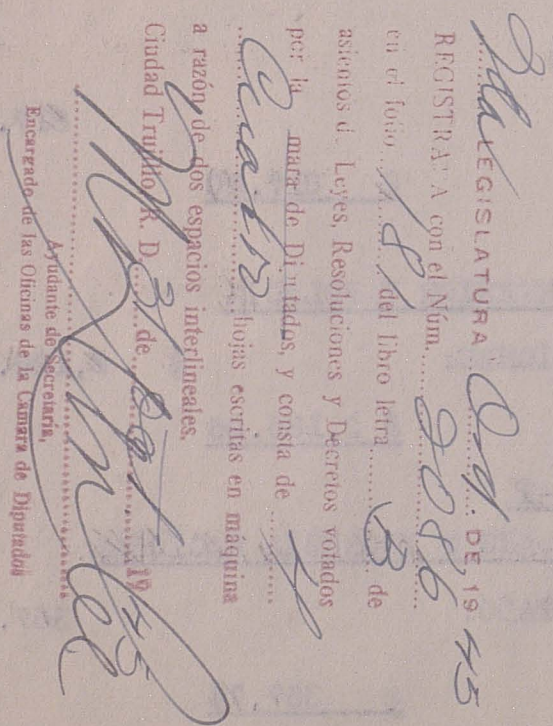 2da LEGISLATURA Ord. DE 1945
REGISTRADA con el Núm. 2086
en el folio 181 del libro letra B de
asientos de Leyes, Resoluciones y Decretos votados
por la mara de Diputados, y consta de
Cuatro hojas escritas en máquina
a razón de dos espacios interlineales.
Ciudad Trujillo, R. D. 31 de 1945
Ayudante de Secretaría,
Encargado de las Oficinas de la Camara de Diputados